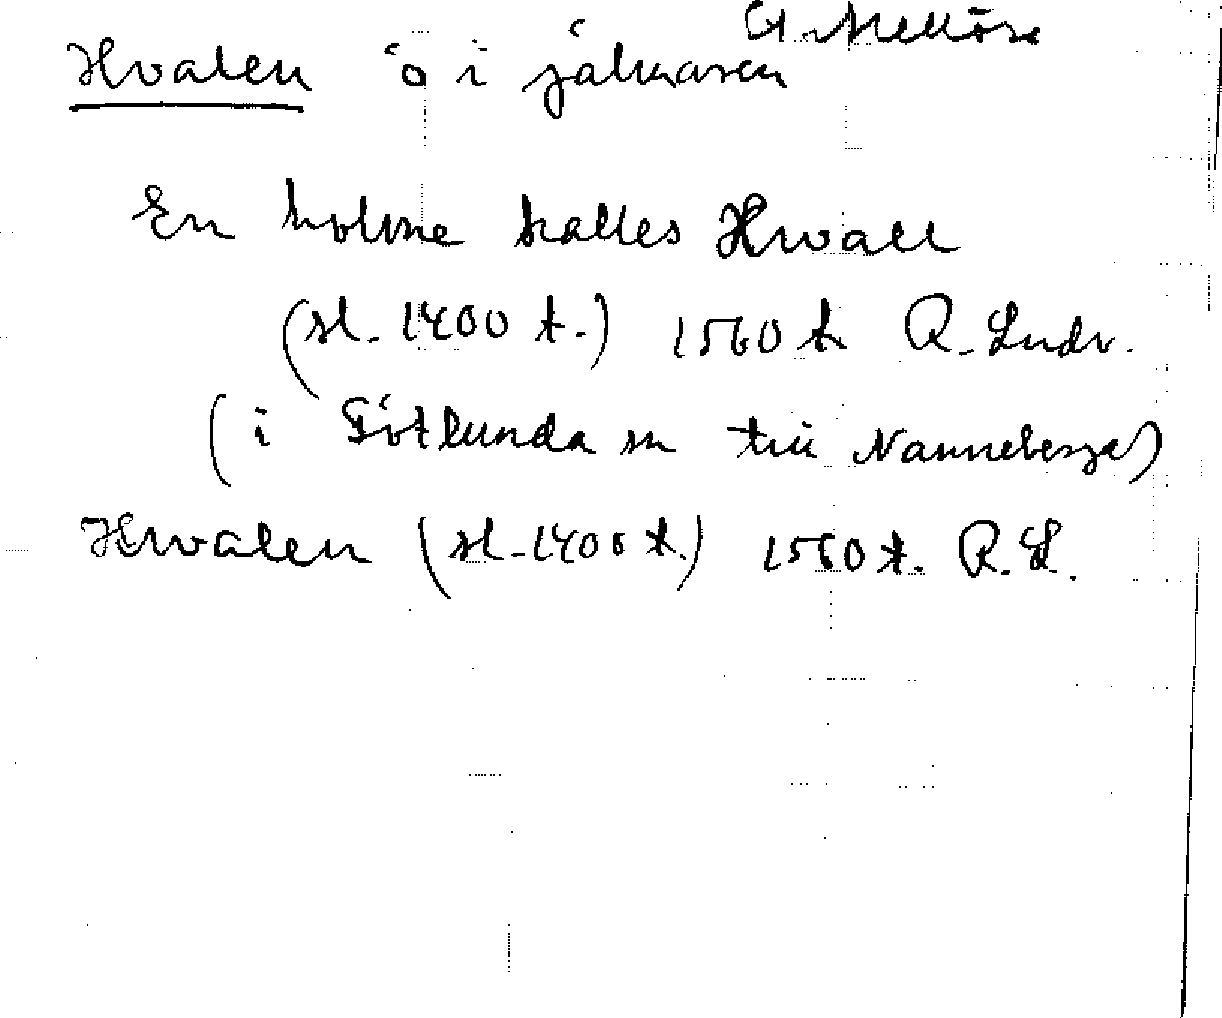 St Mellösa
Hvalen ö i Hjälmaren
En holme kalles Hwall
(sl. 1400 t.) 1560 t R. Ludv.
(i Götlunda sn till Nanneberga)
Hwalen (sl. 1400 t.) 1560 t. R. L.